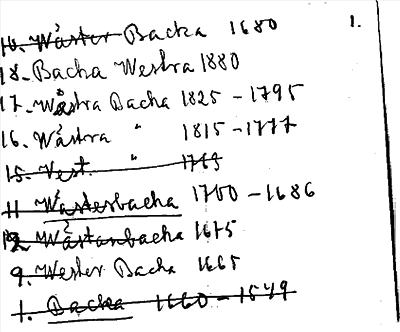 14. Wäster Backa 1680 1.
18. Backa Westra 1880
17. Wästra Backa 1825 - 1795
16. Wästra " 1815 - 1777
15. Vest. " 1765
11 Wästerbacka 1750 - 1686
12. Wästanbacka 1675
9. Wester Backa 1665
1. Backa 1660 - 1549